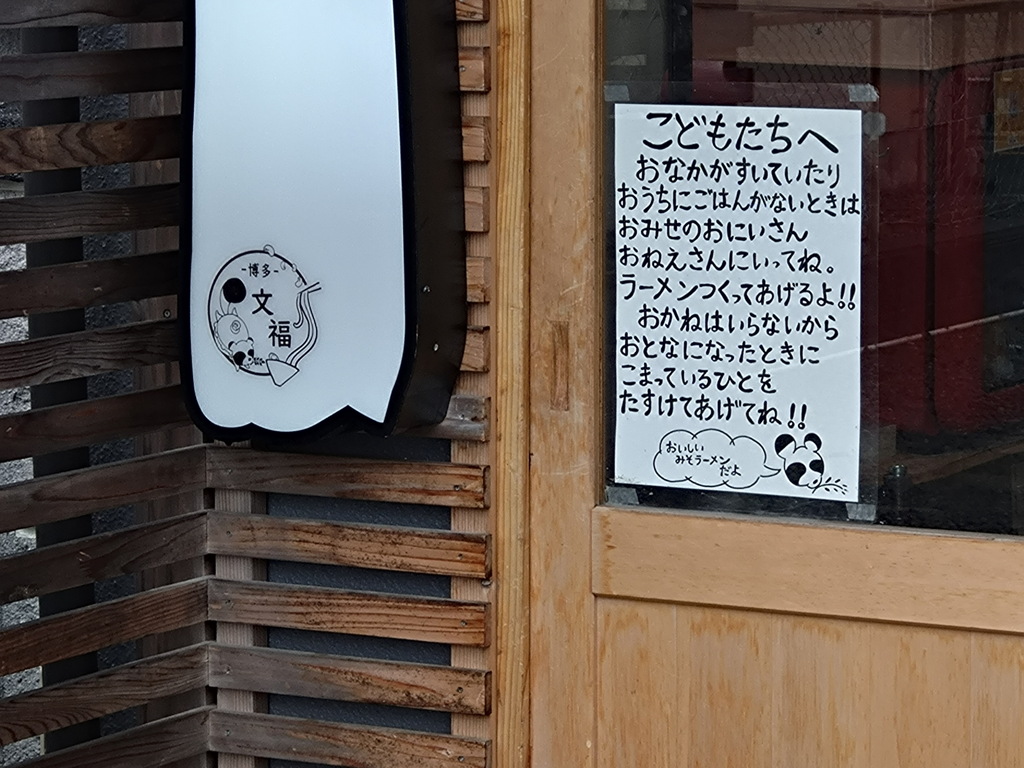 -博多-
文
福
こどもたちへ
おなかがすいていたり
おうちにごはんがないときは
おみせのおにいさん
おねえさんにいってね。
ラーメンつくってあげるよ!!
おかねはいらないから
おとなになったときに
こまっているひとを
たすけてあげてね!!
おいしい
みそラーメン
だよ